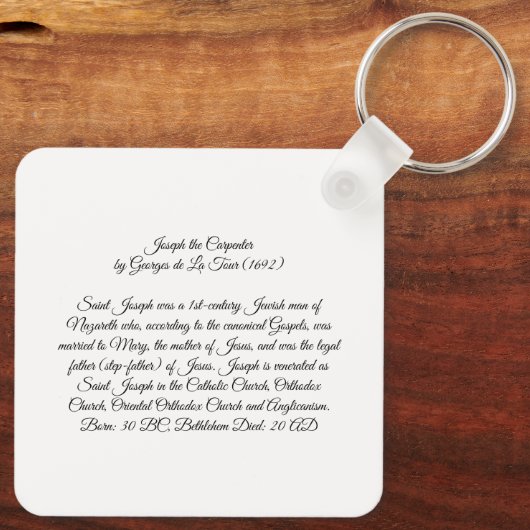 Joseph the Carpenter
by Georges de La Tour (1692)
Saint Joseph was a 1st-century Jewish man of
Nazareth who, according to the canonical Gospels, was
married to Mary, the mother of Jesus, and was the legal
father (step-father) of Jesus. Joseph is venerated as
Saint Joseph in the Catholic Church, Orthodox
Church, Oriental Orthodox Church and Anglicanism.
Born: 30 BC, Bethlehem Died: 20 AD